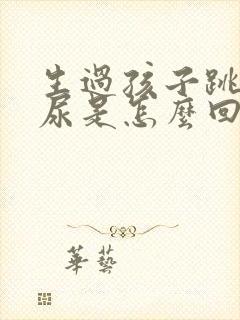 生過孩子跳
尿是怎麼回
華藝